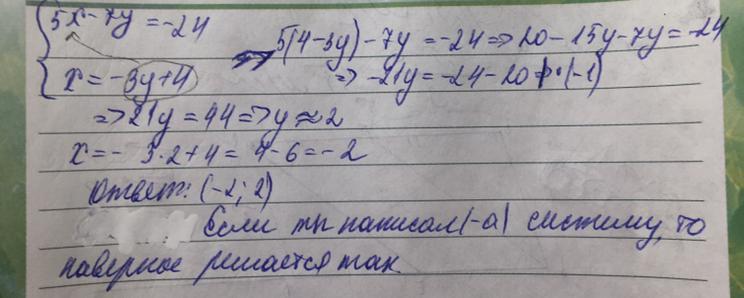 5x - 7y = -24
x = -3y+4
=> 5(4-3y) - 7y = -24 => 20 - 15y - 7y = -24
=> -21y = -24 - 20 | · (-1)
=> 21y = 44 => y ≈ 2
x = - 3·2+4 = 4-6 = -2
Ответ: (-2; 2)
Если ты написал(-а) систему, то
наверное решается так